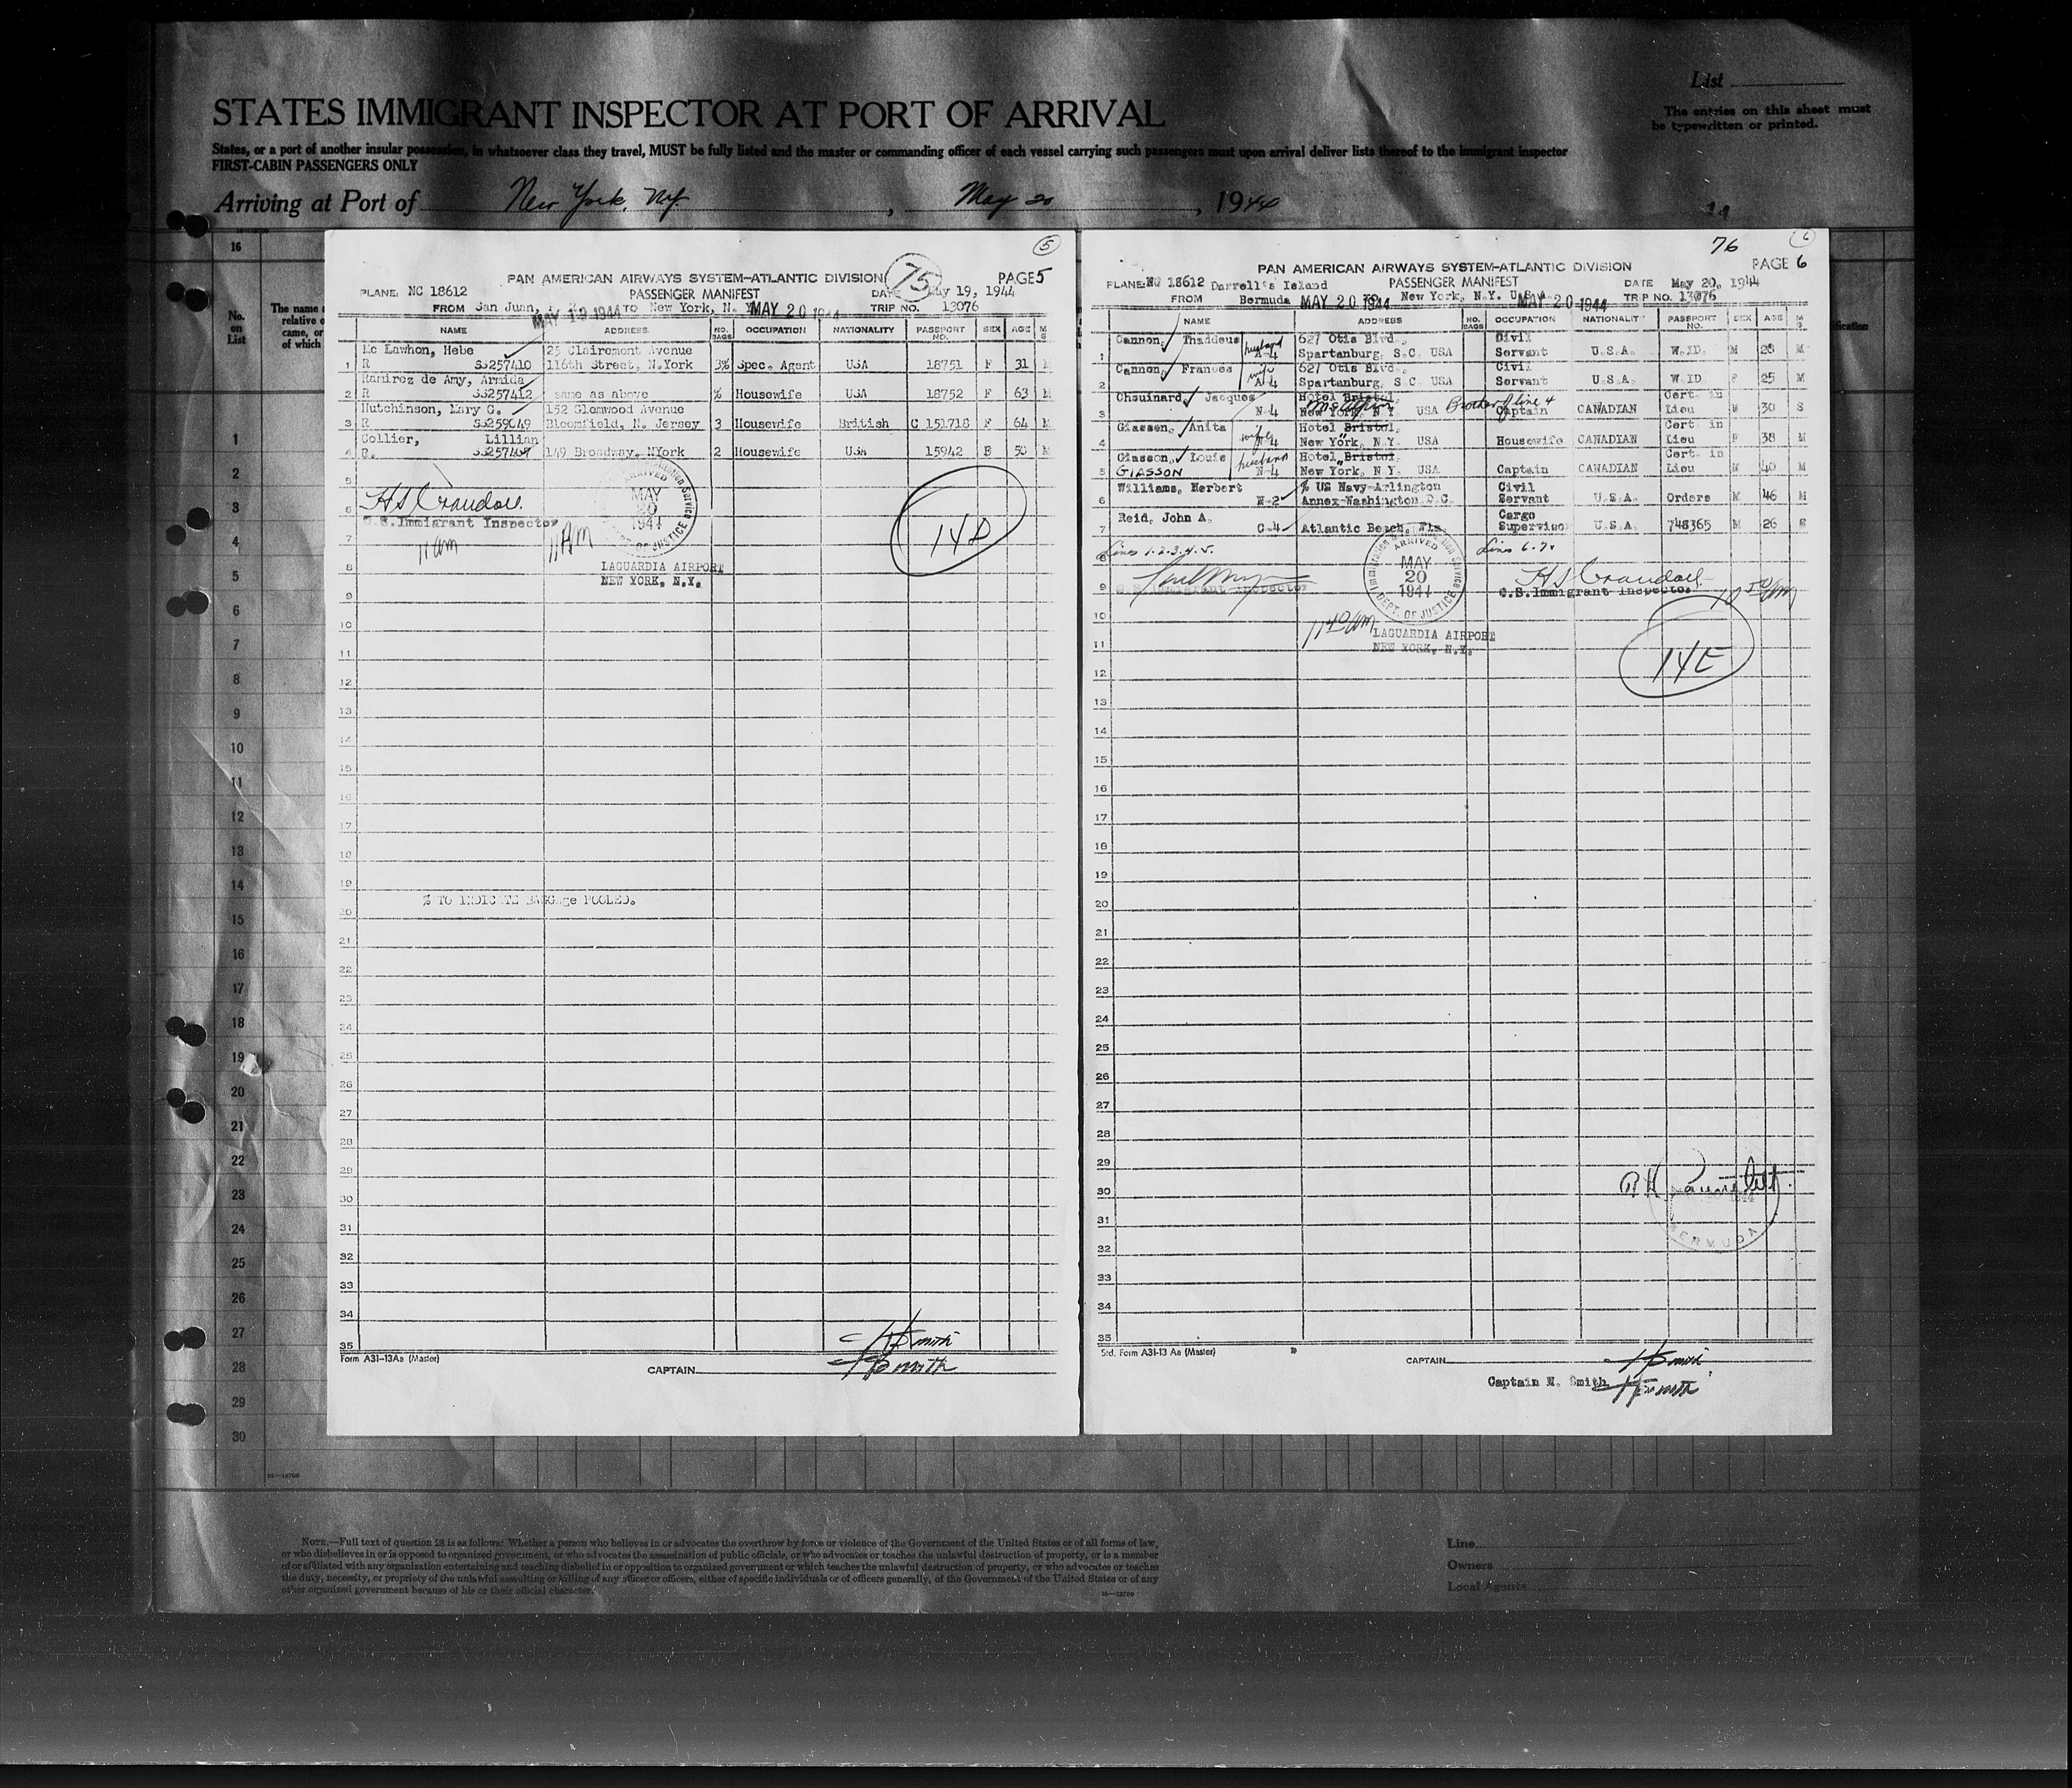 List
The entries on this sheet must
be typewritten or printed.
STATES IMMIGRANT INSPECTOR AT PORT OF ARRIVAL
States, or a port of another insular possession, in whatsoever class they travel, MUST be fully listed and the master or commanding officer of each vessel carrying such passengers must upon arrival deliver lists thereof to the immigrant inspector
FIRST-CABIN PASSENGERS ONLY
Arriving at Port of New York, NY. , May 20 , 1944
14
16
The name a
relative o
came, or
of which
No.
on
List
ification
1
2
3
4
5
6
7
8
9
10
11
12
13
14
15
16
17
18
19
20
21
22
23
24
25
26
27
28
29
30
5
75
PAN AMERICAN AIRWAYS SYSTEM—ATLANTIC DIVISION PAGE 5
PLANE: NC 18612 PASSENGER MANIFEST DATE May 19, 1944
FROM San Juan, MAY 19 1944 TO New York, N. Y MAY 20 1944 TRIP NO. 13076
NAME ADDRESS NO. BAGS OCCUPATION NATIONALITY PASSPORT NO. SEX AGE M S
Mc Lawhon, Hebe 25 Clairemont Avenue
1 R SS257410 116th Street, N.York 3% Spec. Agent USA 18751 F 31 M
Ramirez de Amy, Armida
2 R SS257412 same as above % Housewife USA 18752 F 63 M
Hutchinson, Mary G. 152 Glemwood Avenue
3 R SS259049 Bloomfield, N. Jersey 3 Housewife British C 151718 F 64 M
Collier, Lillian
4 R. SS257409 149 Broadway, NYork 2 Housewife USA 15942 F 50 M
5
6 H S Crandall
U.S.Immigrant Inspector
11 am
11 AM
ARRIVED
MAY
20
1944
DEPT. OF JUSTICE
LAGUARDIA AIRPORT
NEW YORK, N.Y.
14D
7
8
9
10
11
12
13
14
15
16
17
18
19
% TO INDICATE BAGGage POOLED.
20
21
22
23
24
25
26
27
28
29
30
31
32
33
34
35
H Smith
Form A31-13Aa (Master)
CAPTAIN H Smith
76 6
PAN AMERICAN AIRWAYS SYSTEM—ATLANTIC DIVISION PAGE 6
PLANE: NC 18612 Darrell's Island PASSENGER MANIFEST DATE May 20, 1944
FROM Bermuda MAY 20 1944 TO New York, N.Y. U.S.A. MAY 20 1944 TRIP NO. 13076
NAME ADDRESS NO. BAGS OCCUPATION NATIONALITY PASSPORT NO. SEX AGE M S
Cannon, Thaddeus husband 627 Otis Blvd., Civil
1 A-4 Spartanburg, S.C. USA Servant U.S.A. W.ID. M 28 M
Cannon, Frances wife 627 Otis Blvd., Civil
2 A-4 Spartanburg, S.C. USA Servant U.S.A. W.ID F 25 M
Chouinard, Jacques Hotel Bristol, Brother of line 4 Cert. in
3 N-4 New York, N.Y. USA Captain CANADIAN Lieu M 30 S
Glassen, Anita wife Hotel Bristol, Cert. in
4 N-4 New York, N.Y. USA Housewife CANADIAN Lieu F 38 M
Glasson, Louis husband Hotel Bristol, Cert. in
5 GIASSON N-4 New York, N.Y. USA Captain CANADIAN Lieu M 40 M
Williams, Herbert % US Navy-Arlington Civil
6 N-2 Annex-Washington D.C. Servant U.S.A. Orders M 46 M
Reid, John A. Cargo
7 C-4 Atlantic Beach, Fla. Supervisor U.S.A. 748365 M 26 S
8 Lines 1.2.3.4.5. Lines 6.7.
9 U.S. Immigrant Inspector
H S Crandall
U.S.Immigrant Inspector 10 50 AM
ARRIVED
MAY
20
1944
DEPT. OF JUSTICE
11 40 AM
LAGUARDIA AIRPORT
NEW YORK, N.Y.
14E
10
11
12
13
14
15
16
17
18
19
20
21
22
23
24
25
26
27
28
29
30
31
32
33
34
35
BERMUDA
Std. Form A31-13 Aa (Master)
CAPTAIN H Smith
Captain N. Smith H Smith
16—18709
NOTE.—Full text of question 28 is as follows: Whether a person who believes in or advocates the overthrow by force or violence of the Government of the United States or of all forms of law,
or who disbelieves in or is opposed to organized government, or who advocates the assassination of public officials, or who advocates or teaches the unlawful destruction of property, or is a member
of or affiliated with any organization entertaining and teaching disbelief in or opposition to organized government or which teaches the unlawful destruction of property, or who advocates or teaches
the duty, necessity, or propriety of the unlawful assaulting or killing of any officer or officers, either of specific individuals or of officers generally, of the Government of the United States or of any
other organized government because of his or their official character.
16—18709
Line
Owners
Local Agents